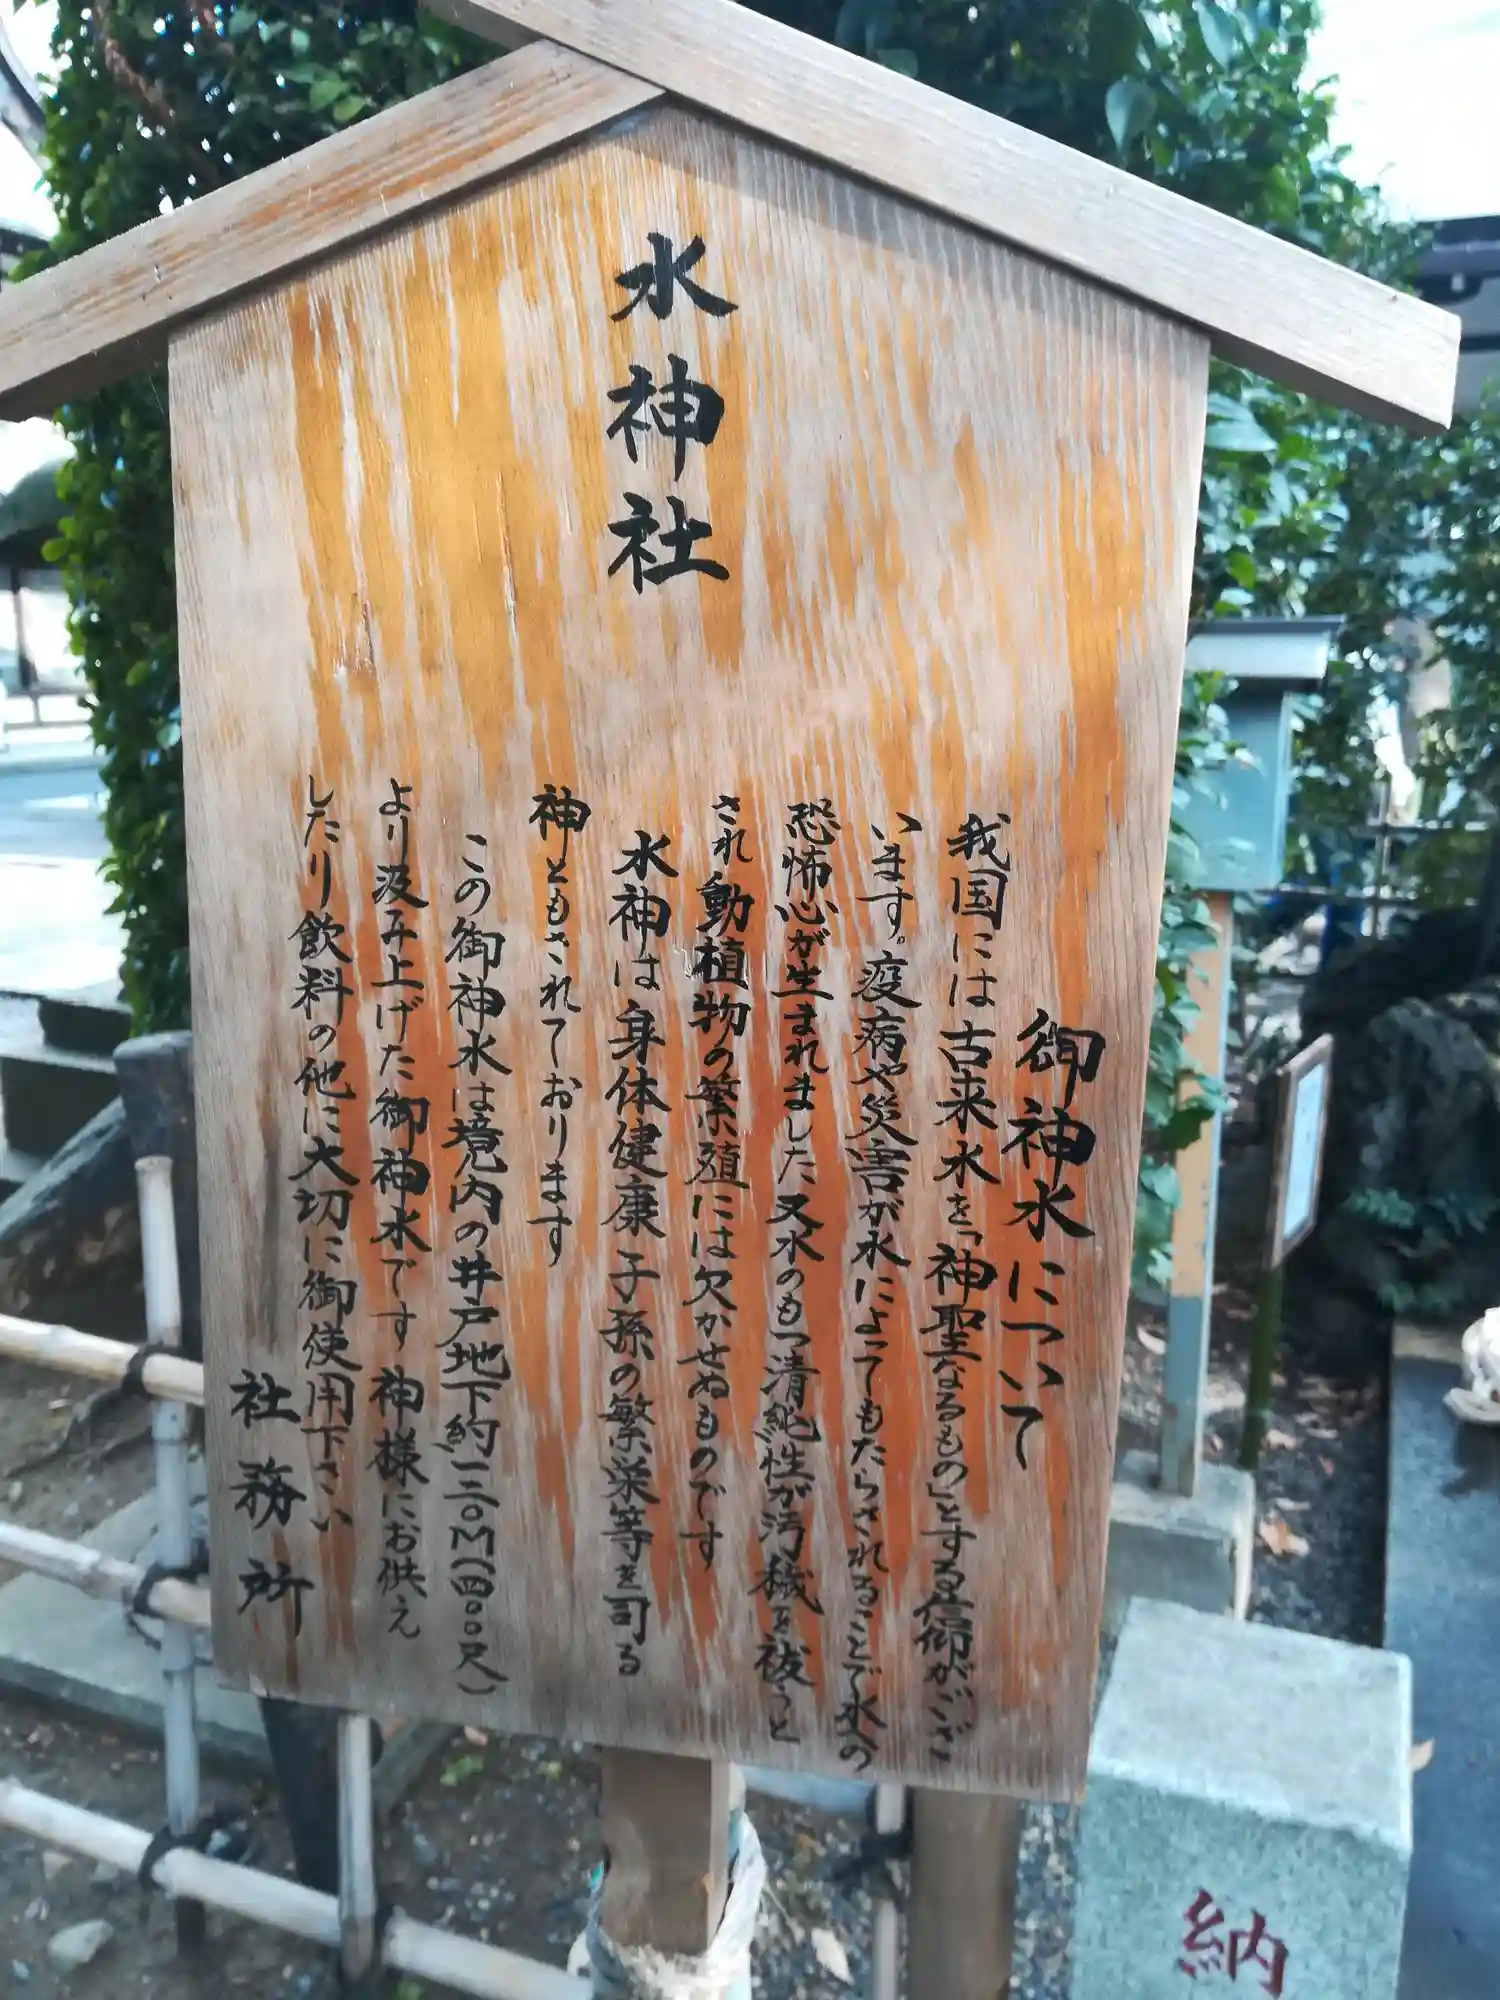 水神社
御神水について
我国には古来水を「神聖なるもの」とする信仰がござ
います。疫病や災害が水によってもたらされることで水の
恐怖心が生まれました又水のもつ清純性が汚穢を祓うと
され動植物の繁殖には欠かせぬものです
水神は身体健康子孫の繁栄等を司る
神ともされております
この御神水は境内の井戸地下約一二〇M(四〇〇尺)
より汲み上げた御神水です神様にお供え
したり飲料の他に大切に御使用下さい
社務所
納